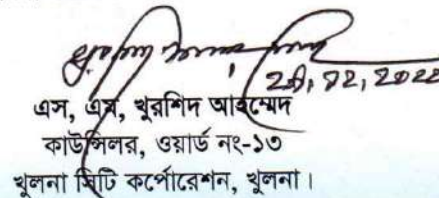 ২৯,১২,২০২২
এস, এম, খুরশিদ আহম্মেদ
কাউন্সিলর, ওয়ার্ড নং-১৩
খুলনা সিটি কর্পোরেশন, খুলনা।